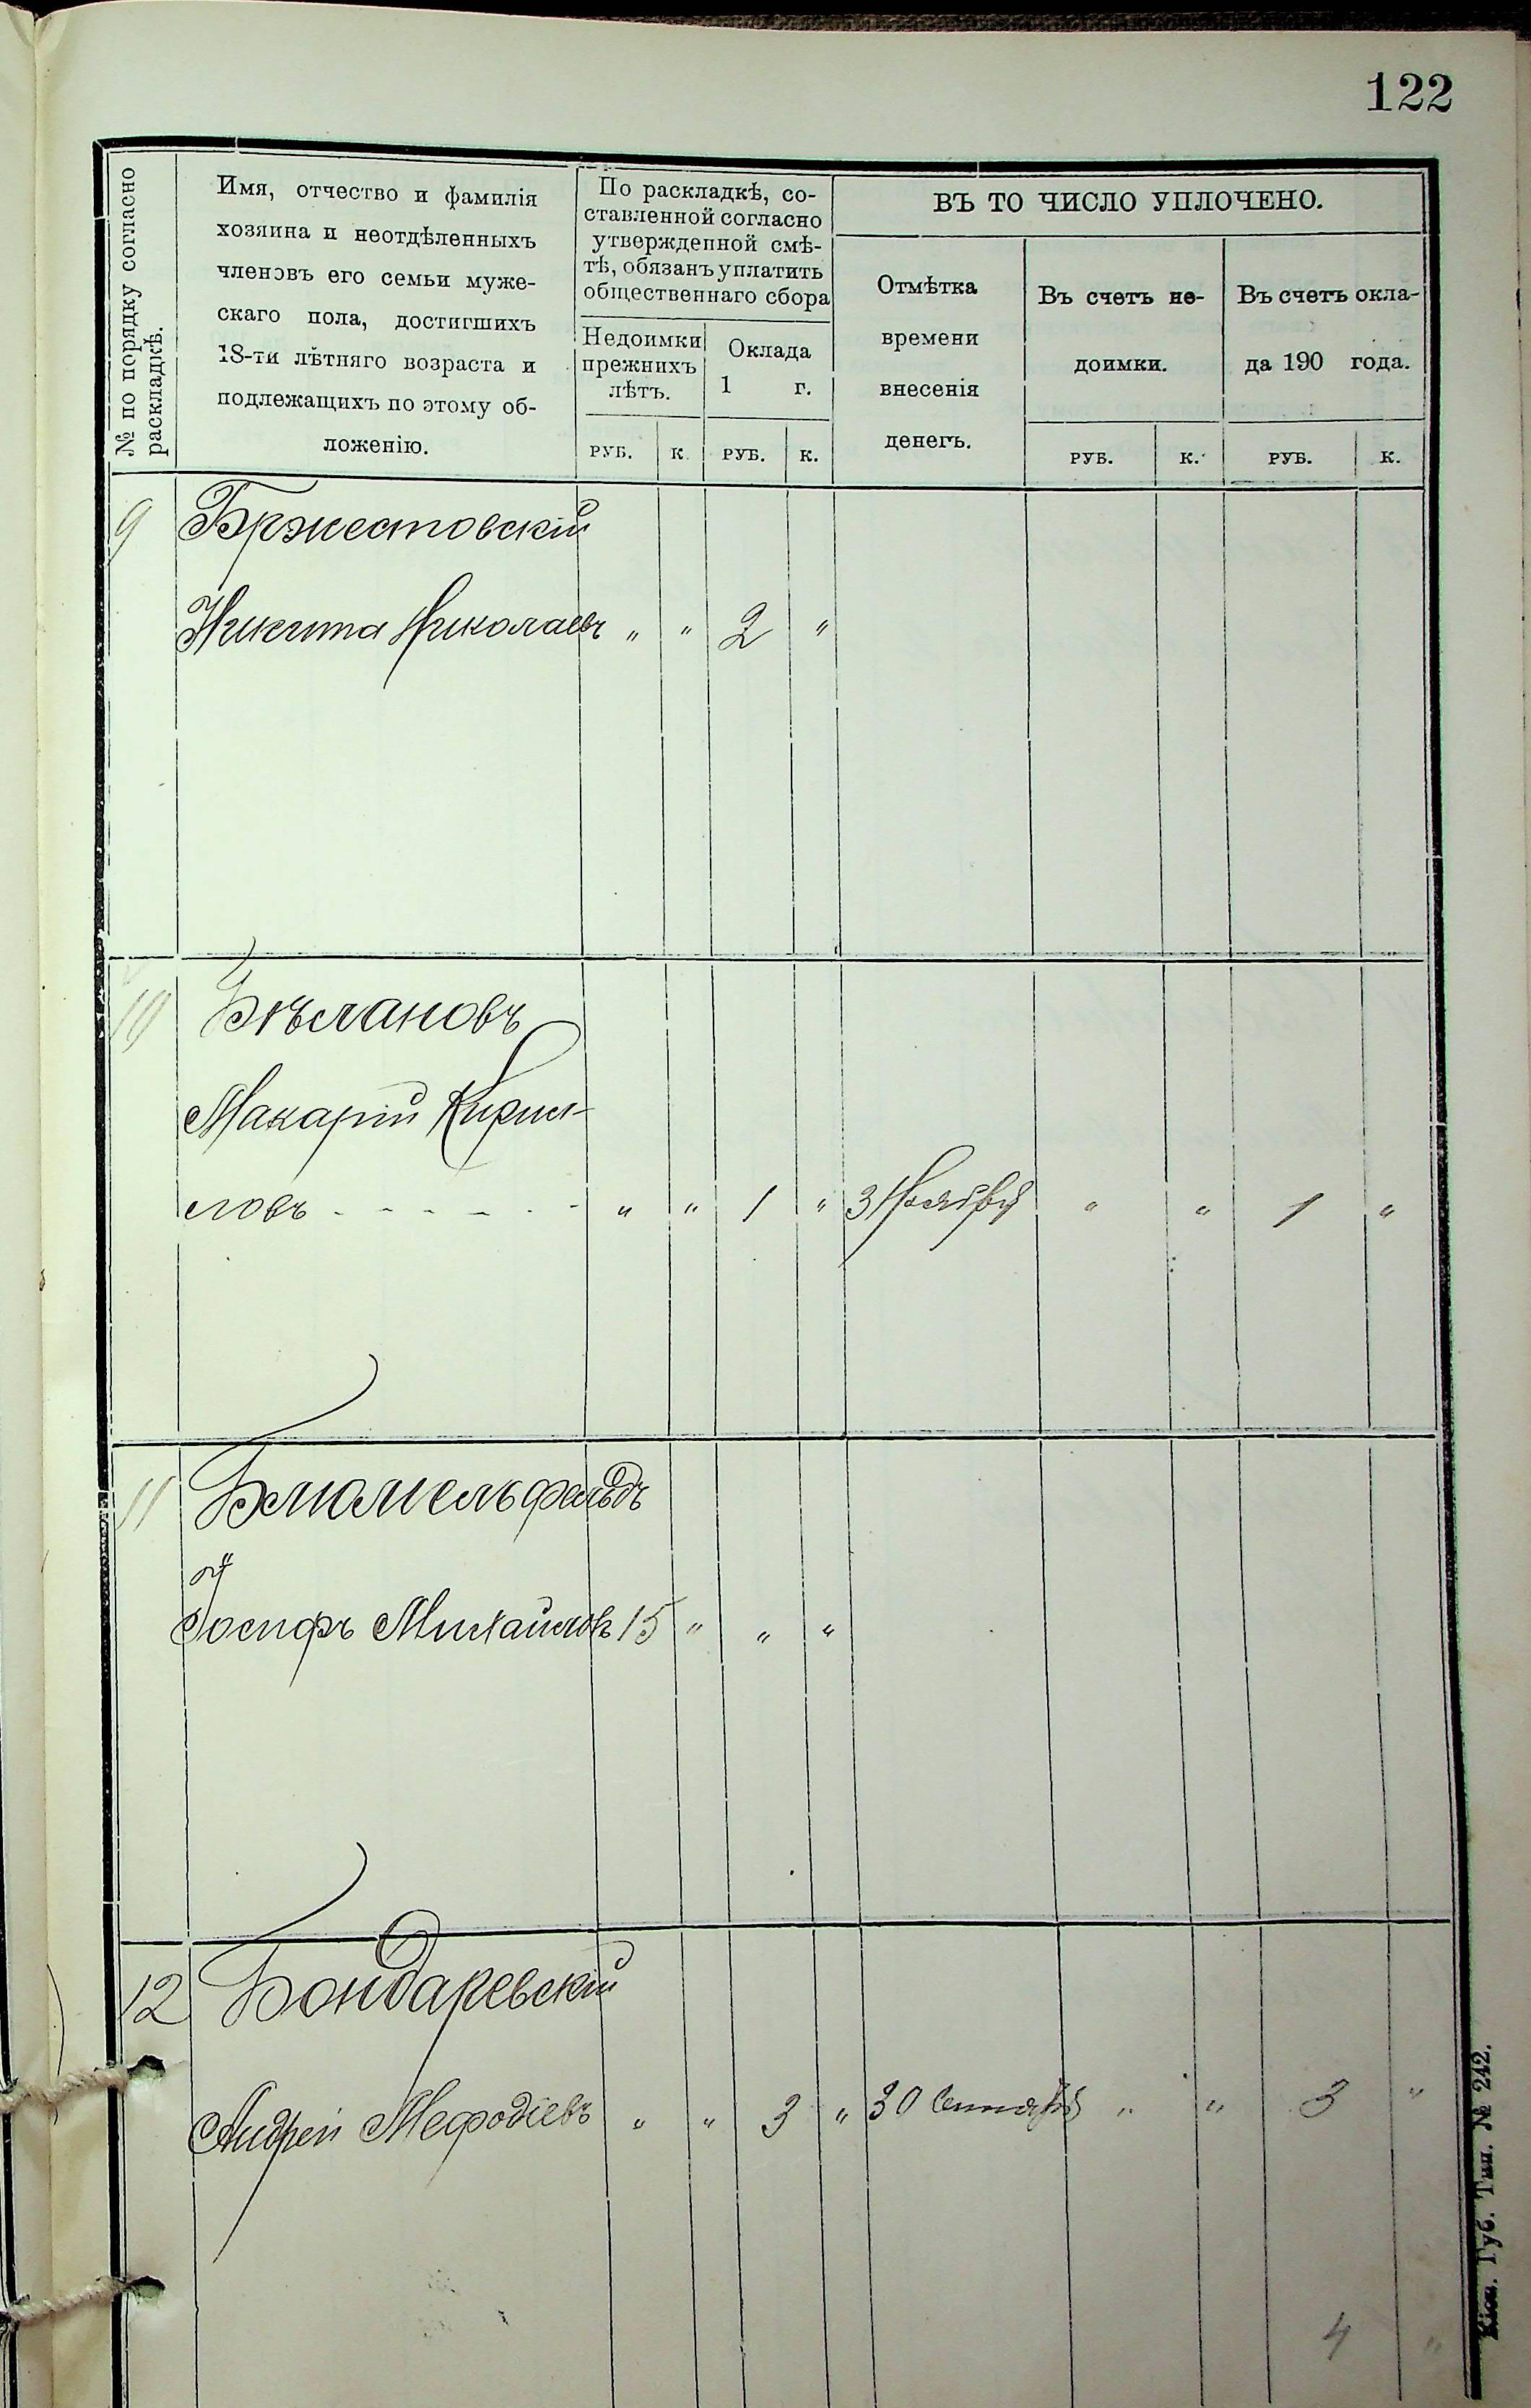 122
№ по порядку согласно
раскладкѣ.
Имя, отчество и фамилія
хозяина и неотдѣленныхъ
членовъ его семьи муже-
скаго пола, достигшихъ
18-ти лѣтняго возраста и
подлежащихъ по этому об-
ложенію.
По раскладкѣ, со-
ставленной согласно
утвержденной смѣ-
тѣ, обязанъ уплатить
общественнаго сбора
Недоимки
прежнихъ
лѣтъ.
Оклада
1 г.
ВЪ ТО ЧИСЛО УПЛОЧЕНО.
Отмѣтка
времени
внесенія
денегъ.
Въ счетъ не-
доимки.
Въ счетъ окла-
да 190 года.
РУБ. К. РУБ. К. РУБ. К. РУБ. К.
9 Бржестовскій
Никита Николаевъ " " 2 "
10 Бѣлановъ
Макарій Кирил-
ловъ - - - - - - " " 1 " 3 Ноября " " 1 "
11 Блюмельфельдъ
Іосифъ Михайловъ 15 " " "
12 Бондаревскій
Андрей Мефодіевъ " " 3 " 30 Сентября " " 3 "
4 "
Кіев. Губ. Тип. № 242.